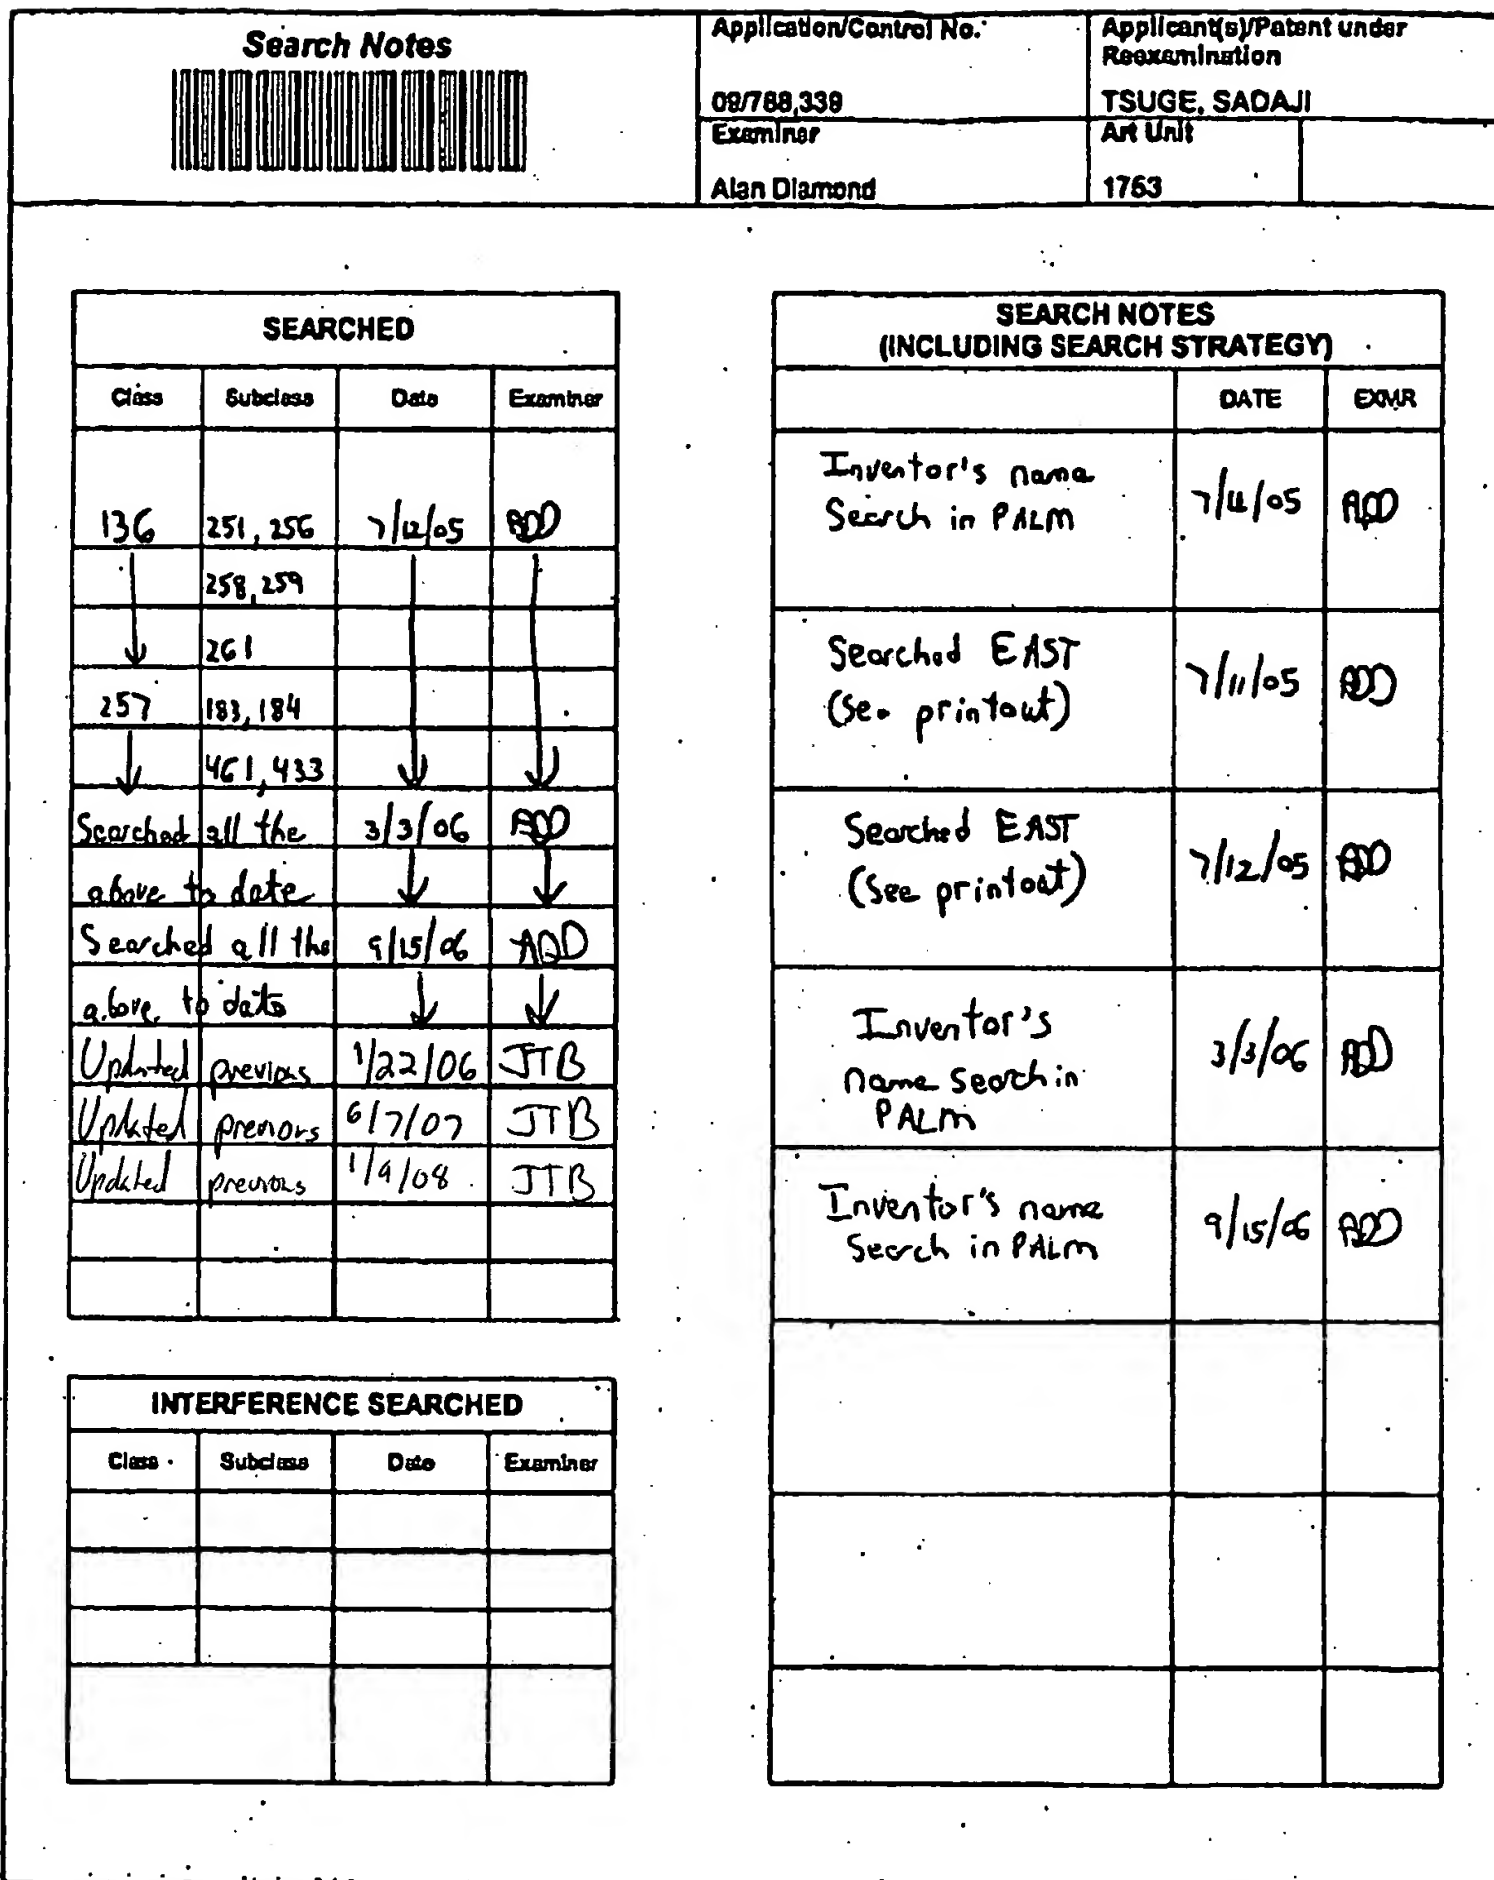 Search Notes
Application/Control No.
Applicant(s)/Patent under
Reexamination
09/788,339
TSUGE, SADAJI
Examiner
Art Unit
Alan Diamond
1753
SEARCHED
Class Subclass Date Examiner
136 251, 256 7/12/05 ADD
258, 259
261
257 183, 184
461, 433
Searched all the 3/3/06 ADD
above to date
Searched all the 9/15/06 ADD
above to date
Updated previous 1/22/06 JTB
Updated previous 6/7/07 JTB
Updated previous 1/9/08 JTB
INTERFERENCE SEARCHED
Class Subclass Date Examiner
SEARCH NOTES
(INCLUDING SEARCH STRATEGY)
DATE EXMR
Inventor's name
Search in PALM 7/11/05 ADD
Searched EAST
(See printout) 7/11/05 ADD
Searched EAST
(See printout) 7/12/05 ADD
Inventor's
name search in
PALM 3/3/06 ADD
Inventor's name
Search in PALM 9/15/06 ADD